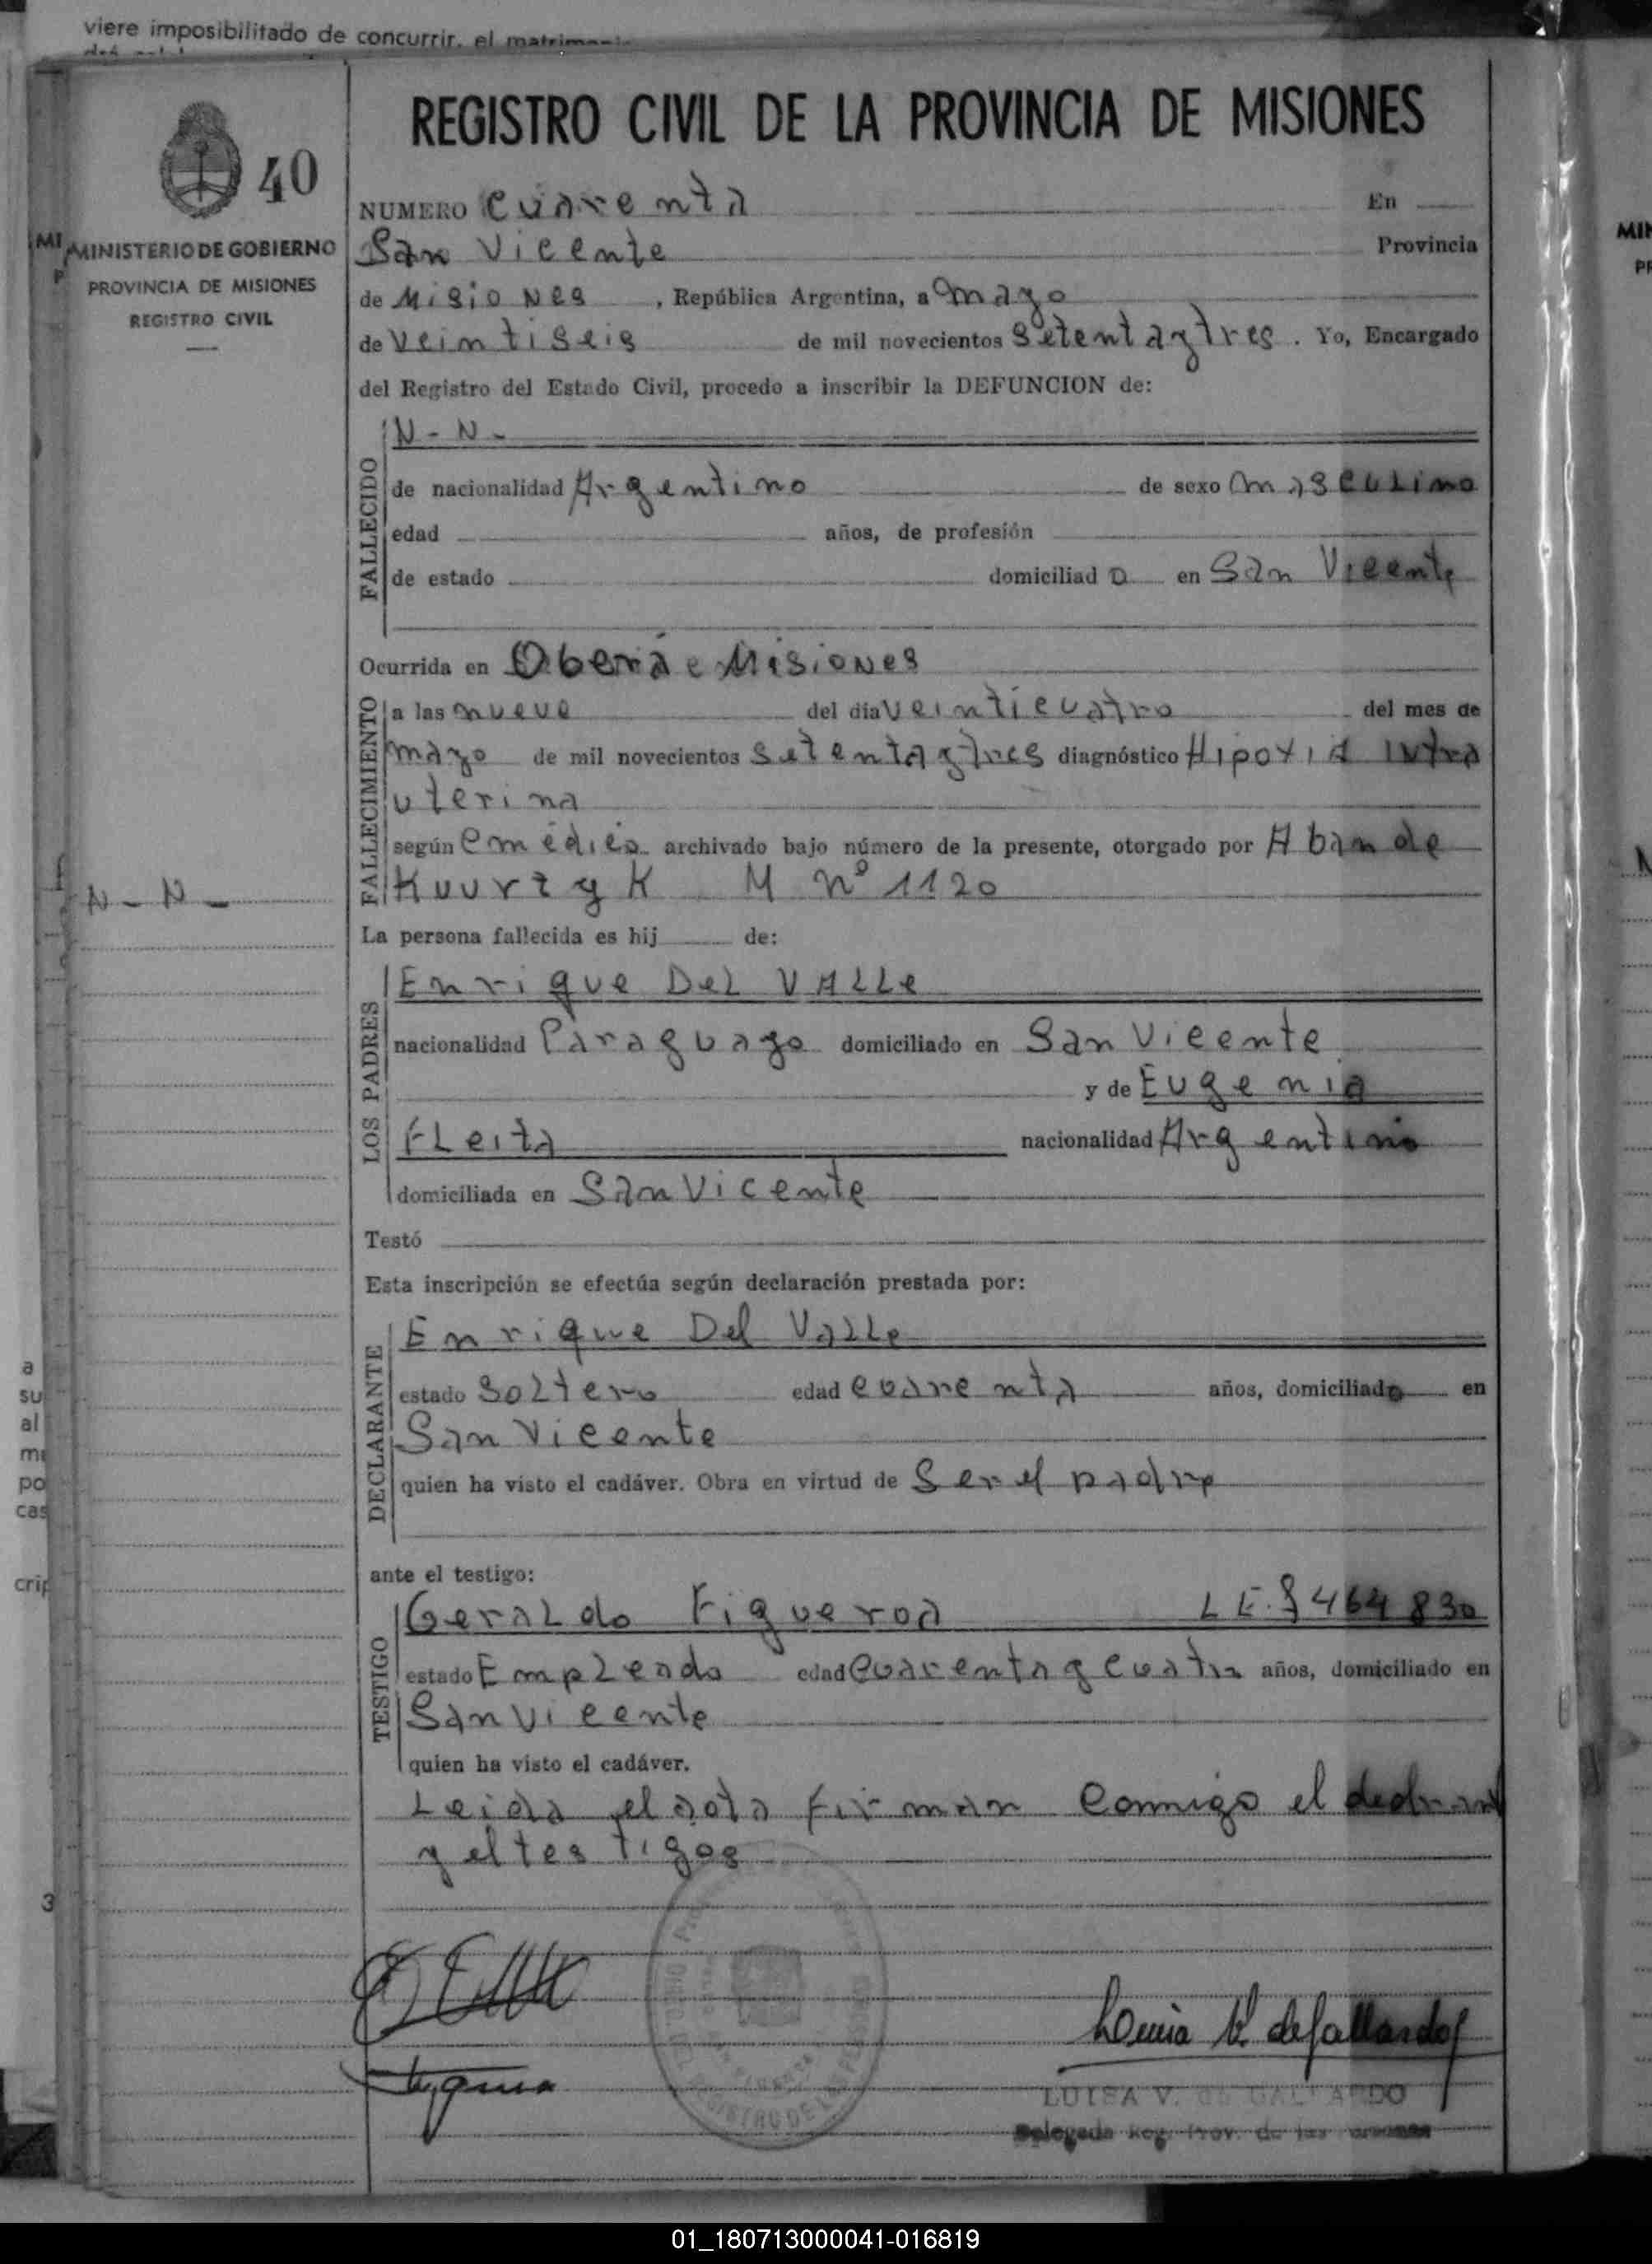 viere imposibilitado de concurrir, el matrimonio
REGISTRO CIVIL DE LA PROVINCIA DE MISIONES
40
MINISTERIO DE GOBIERNO
PROVINCIA DE MISIONES
REGISTRO CIVIL
NUMERO Cuarenta En
San Vicente Provincia
de Misiones, República Argentina, a mayo
de veintiseis de mil novecientos setentaytres. Yo, Encargado
del Registro del Estado Civil, procedo a inscribir la DEFUNCION de:
FALLECIDO
N - N -
de nacionalidad Argentino de sexo masculino
edad años, de profesión
de estado domiciliad o en San Vicente
Ocurrida en Obera e Misiones
FALLECIMIENTO
a las nueve del dia veinticuatro del mes de
mayo de mil novecientos setentaytres diagnóstico Hipoxia Intra
uterina
según C medico archivado bajo número de la presente, otorgado por A ban de
Kuurzyk M nº 1120
N - N -
La persona fallecida es hij de:
LOS PADRES
Enrique Del Valle
nacionalidad Paraguayo domiciliado en San Vicente
y de Eugenia
Fleita nacionalidad Argentino
domiciliada en San Vicente
Testó
Esta inscripción se efectúa según declaración prestada por:
DECLARANTE
Enrique Del Valle
estado Soltero edad cuarenta años, domiciliado en
San Vicente
quien ha visto el cadáver. Obra en virtud de Ser el padre
ante el testigo:
TESTIGO
Geraldo Figueroa L E. 8464830
estado Empleado edad cuarentaycuatro años, domiciliado en
San Vicente
quien ha visto el cadáver.
Leida el acta firman conmigo el declarant
y el testigos
Luisa V. de Gallardo
LUISA V. de GALLARDO
Delegada Reg. Prov. de las
01_180713000041-016819